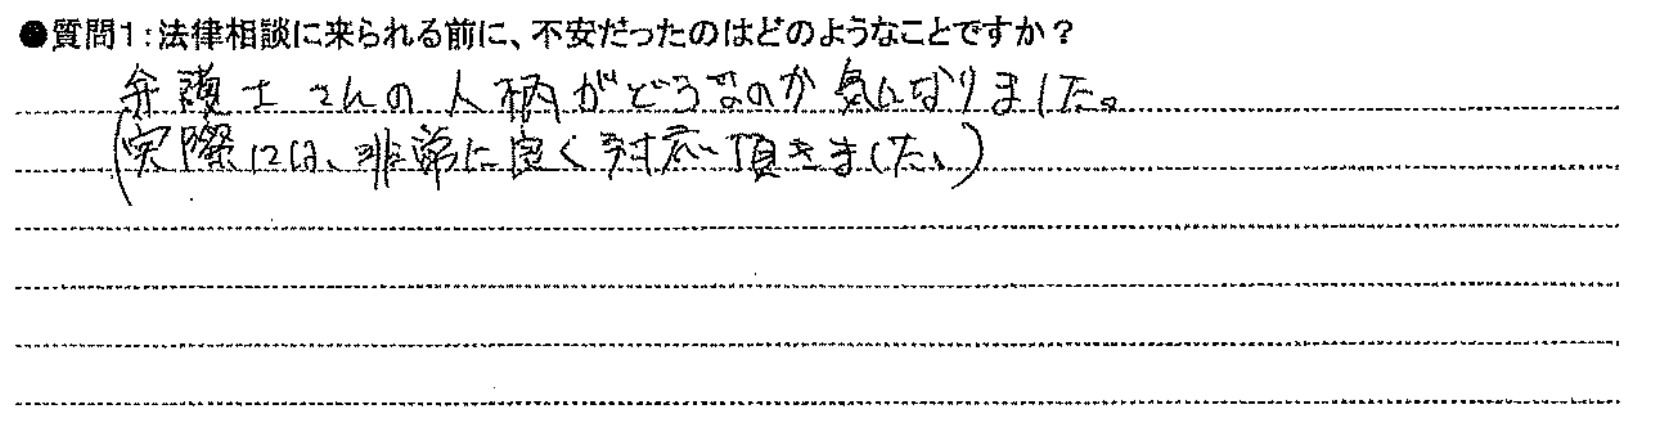 ●質問1:法律相談に来られる前に、不安だったのはどのようなことですか?
弁護士さんの人柄がどうなのか気になりました。
(実際には、非常に良く対応頂きました。)